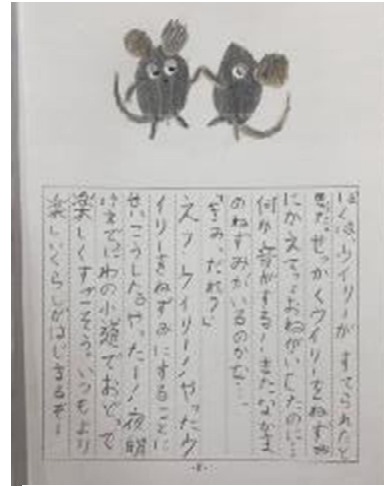 ぼくは、ウイリーがすてられたと
きだ。せっかくウイリーをねずみ
にかえてっておねがいしたのに…
何か音がする！またなかま
のねずみがいるのかな…。
「きみ、だれ？」
えっ、ウイリー！やったウ
イリーをねずみにすることに
せいこうした。やったー！夜明
けまでにわの小道でおどって
楽しくすごそう。いつもより
楽しいくらしがはじまるぞー